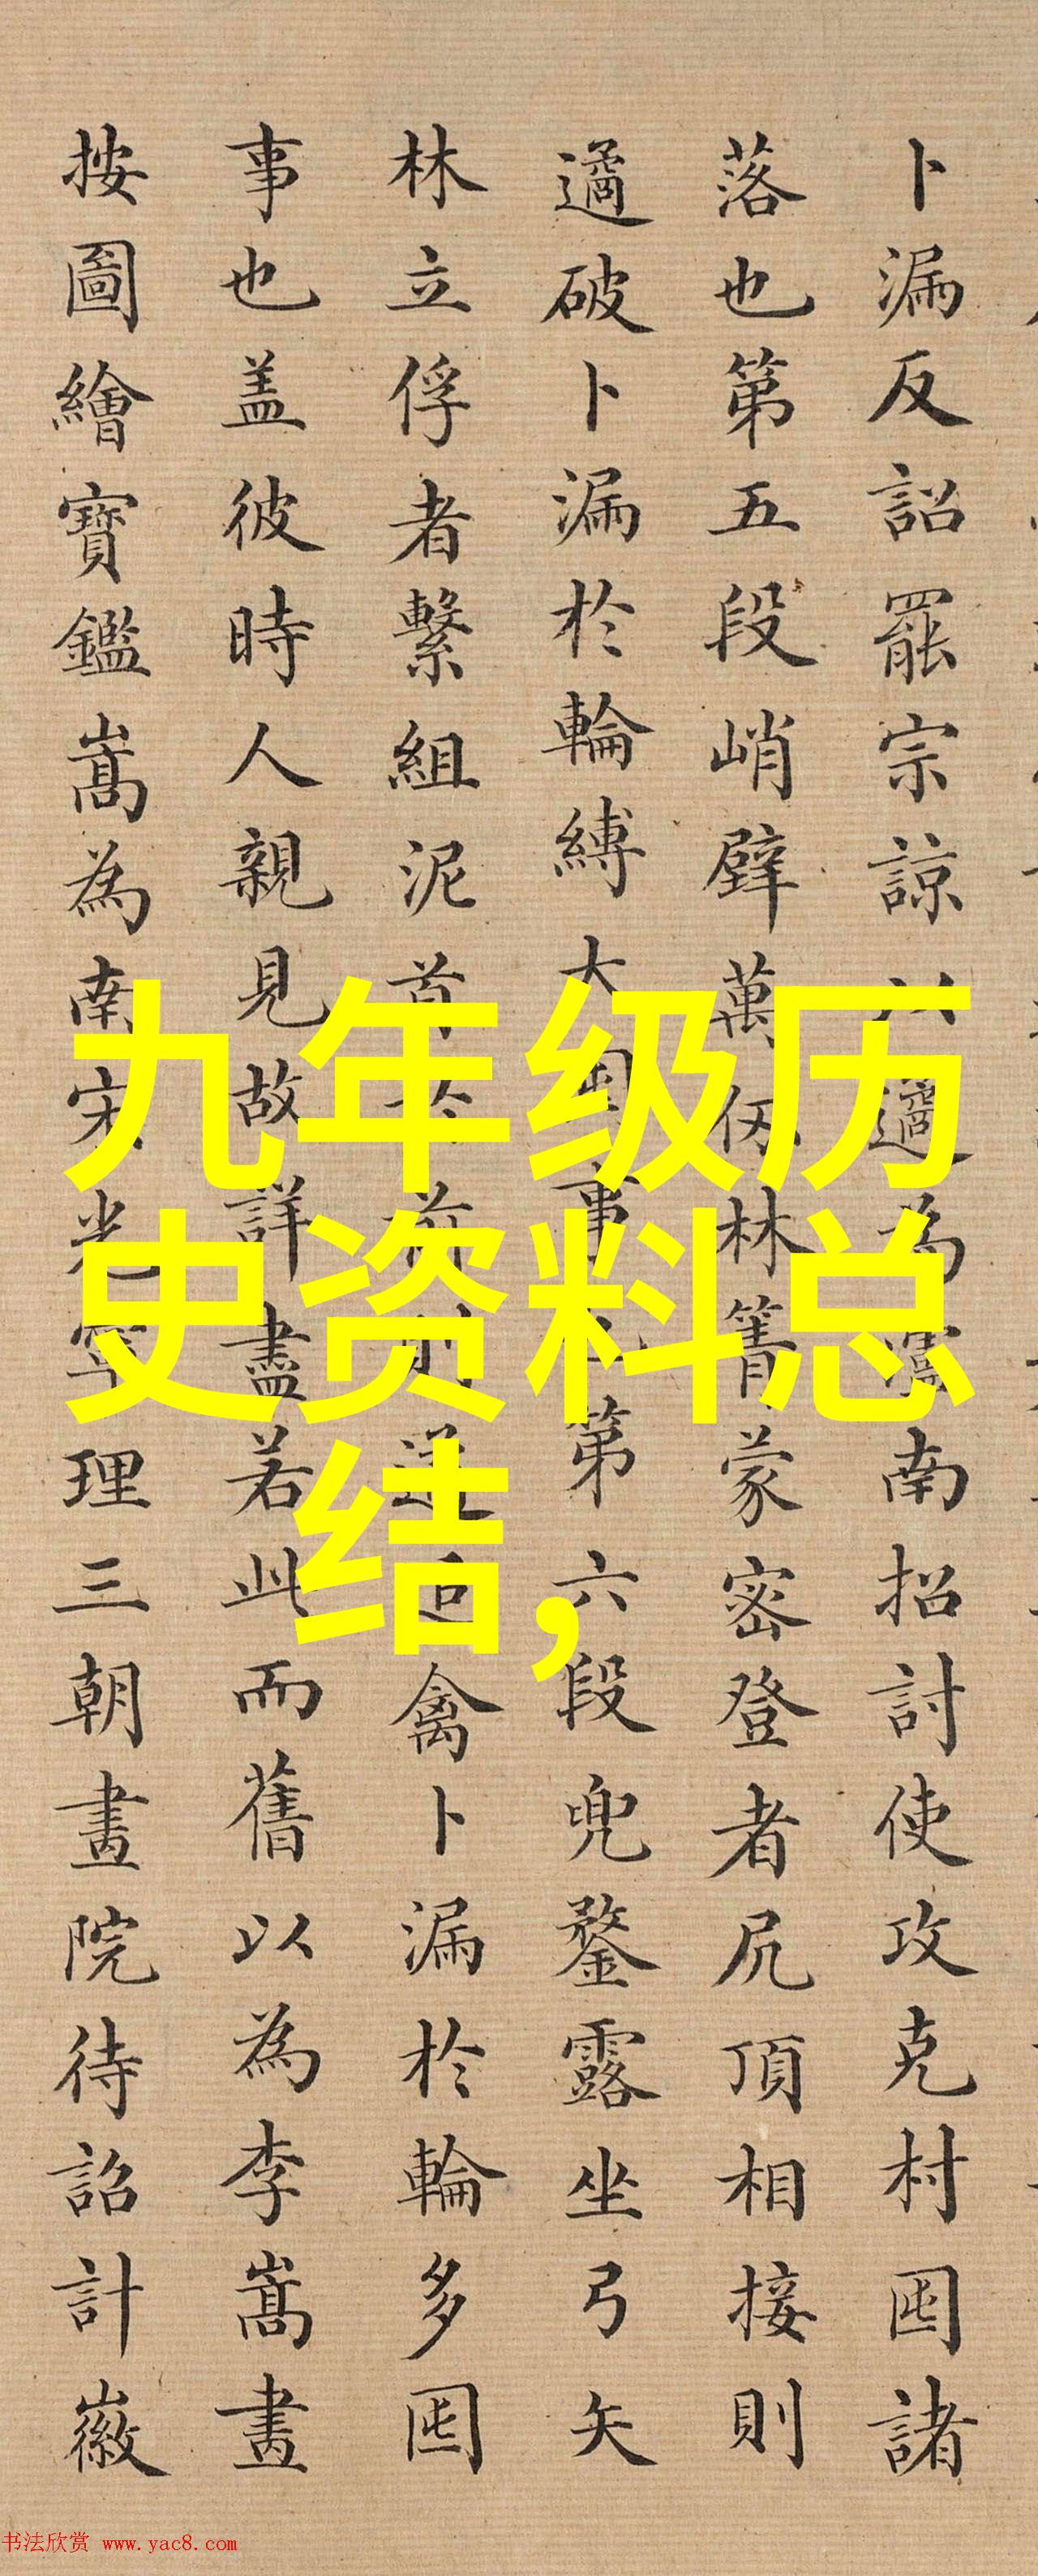 卜漏反詔罷宗諒以遹為瀘南招討使攻克村囤諸
落也第五段峭壁萬仞林箐蒙密登者尻頂相接則
遹破卜漏於輪縛大囤事也第六段兜鍪露坐弓矢
林立俘者繫組泥首於前則遹囤禽卜漏於輪多囤
事也盖彼時人親見故詳盡若此而舊以為李嵩畫
按圖繪寶鑑嵩為南宋光寧理三朝畫院待詔計徽
九年级历
史资料总
结,
书法欣赏 www.yac8.com